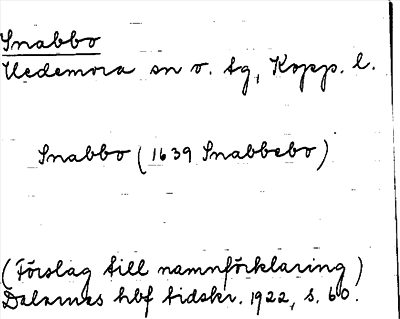 Snabbo
Hedemora sn o. tg, Kopp. l.
Snabbo (1639 Snabbebo)
(Förslag till namnförklaring)
Dalarnes hbf tidskr. 1922, s. 60.